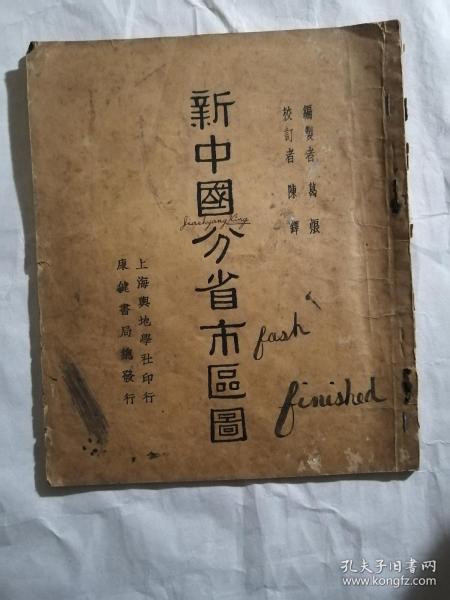 編製者 葛 振
校訂者 陳 鐸
新中國分省市區圖
上海輿地學社印行
康健書局總發行
fash
finished
孔夫子旧书网
www.kongfz.com